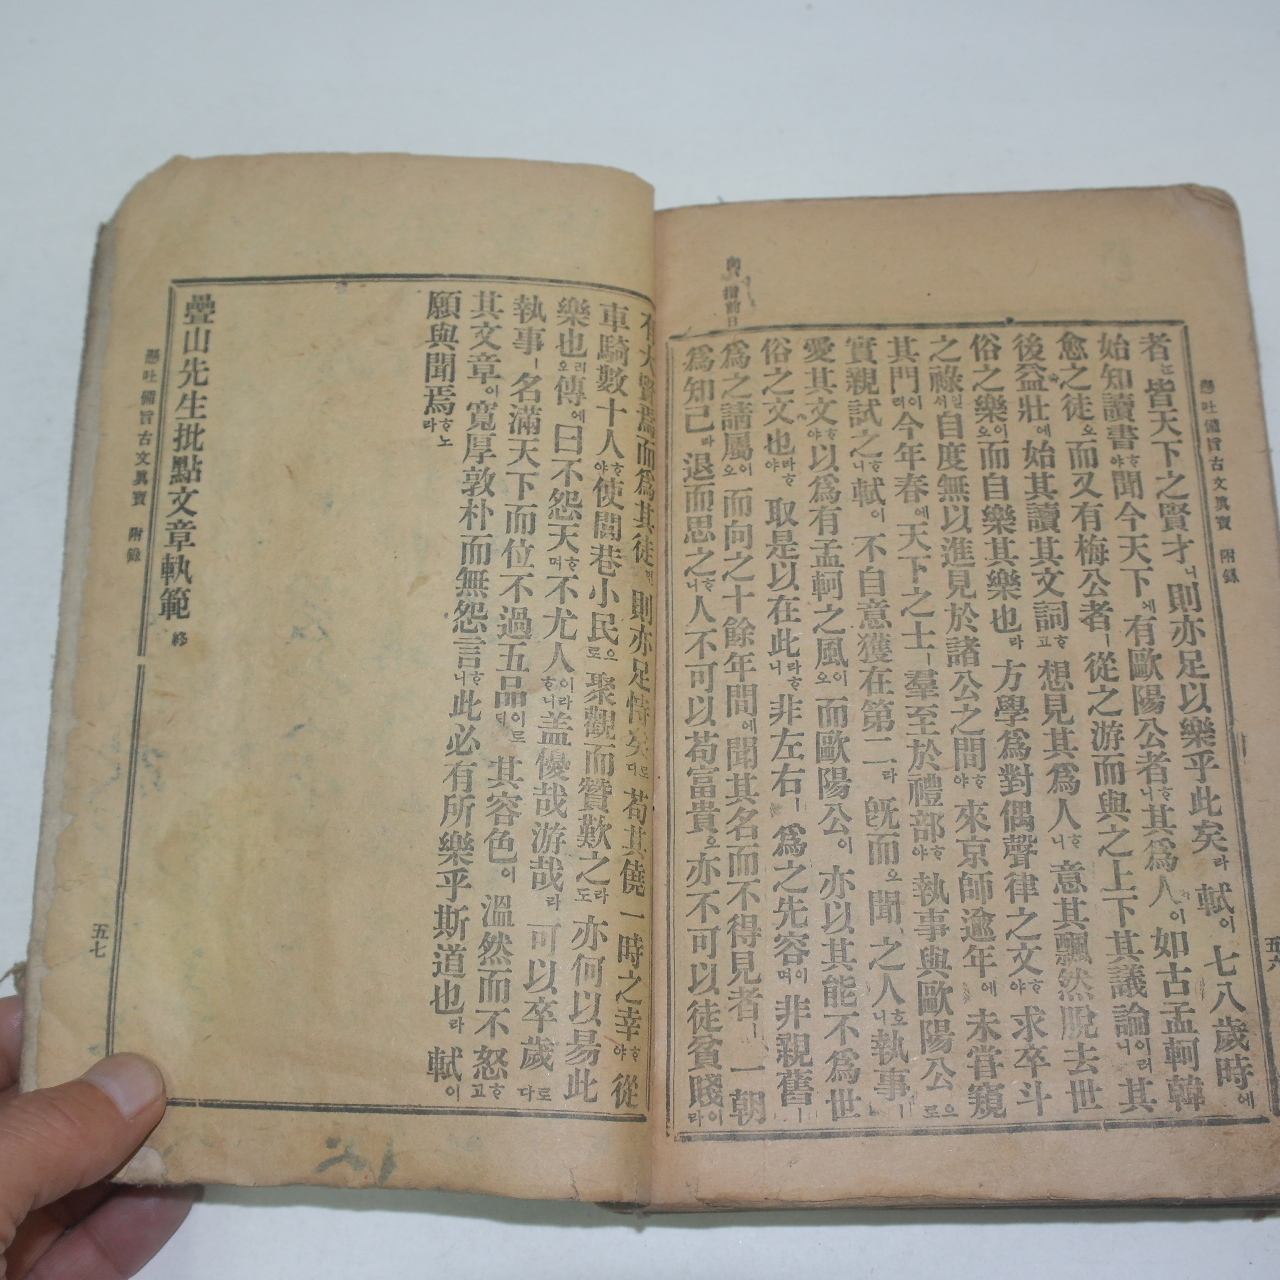 懸吐備旨古文眞寶 附錄
五六
者ᄂᆞᆫ皆天下之賢才니則亦足以樂乎此矣라軾이七八歲時에
始知讀書ᄒᆞ야聞今天下에有歐陽公者ᄒᆞ니其爲人이如古孟軻韓
愈之徒오而又有梅公者ㅣ從之游而與之上下其議論이러니其
後益壯에始其讀其文詞ᄒᆞ고想見其爲人ᄒᆞ니意其飄然脫去世
俗之樂이오而自樂其樂也라方學爲對偶聲律之文ᄒᆞ야求卒斗
之祿일ᄉᆡ自度無以進見於諸公之間ᄒᆞ야來京師逾年에未嘗窺
其門이러니今年春에天下之士ㅣ羣至於禮部ᄒᆞ야執事與歐陽公으로
實親試之ᄒᆞ니軾이不自意獲在第二라旣而오聞之人ᄒᆞ니執事ㅣ
愛其文ᄒᆞ야以爲有孟軻之風이오而歐陽公이亦以其能不爲世
俗之文也라ᄒᆞ야取是以在此라ᄒᆞ니非左右ㅣ爲之先容이며非親舊ㅣ
爲之請屬이오而向之十餘年間에聞其名而不得見者ㅣ一朝
爲知己라退而思之ᄒᆞ니人不可以苟富貴오亦不可以徒貧賤이라
有大賢焉而爲其徒則亦足恃矣로다苟其僥一時之幸ᄒᆞ야從
車騎數十人ᄒᆞ야使閭巷小民으로聚觀而贊歎之라도亦何以易此
樂也리오傳에曰不怨天ᄒᆞ며不尤人이라ᄒᆞ니盖優哉游哉라可以卒歲로다
執事ㅣ名滿天下而位不過五品이로되其容色이溫然而不怒ᄒᆞ고
其文章이寬厚敦朴而無怨言ᄒᆞ니此必有所樂乎斯道也라軾이
願與聞焉ᄒᆞ노라
疊山先生批點文章軌範 終
懸吐備旨古文眞寶 附錄
五七